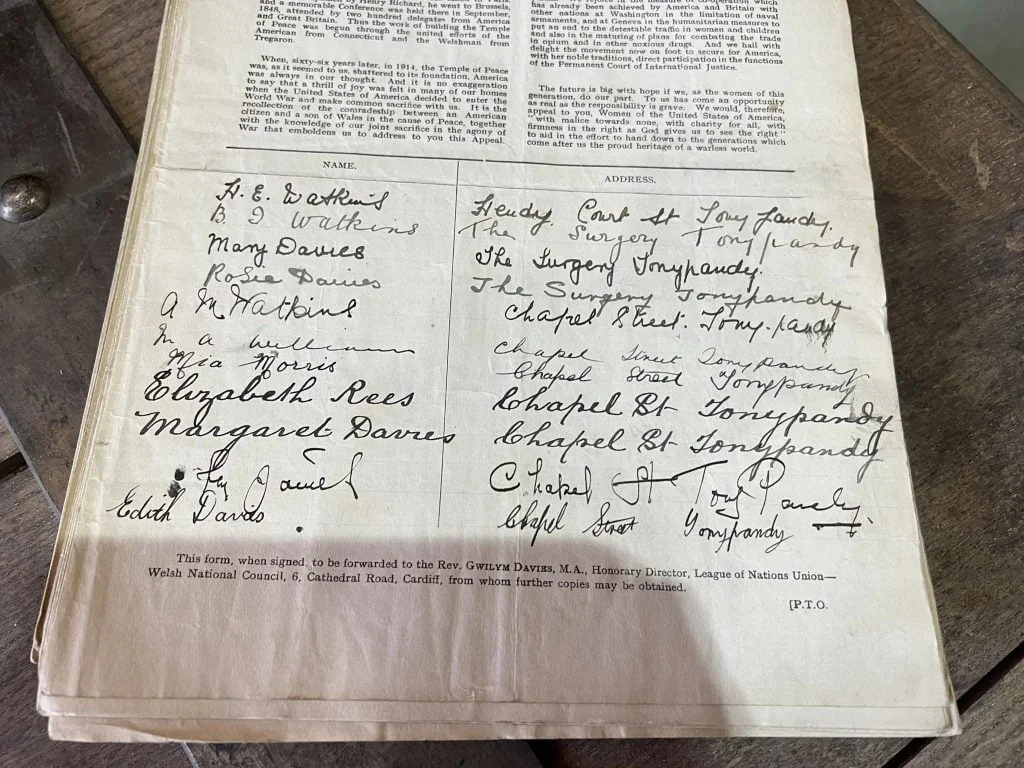 by Henry Richard, he went to Brussels,
and a memorable Conference was held there in September,
1848, attended by two hundred delegates from America
and Great Britain. Thus the work of building the Temple
of Peace was begun through the united efforts of the
American from Connecticut and the Welshman from
Tregaron.
When, sixty-six years later, in 1914, the Temple of Peace
was, as it seemed to us, shattered to its foundation, America
was always in our thought. And it is no exaggeration
to say that a thrill of joy was felt in many of our homes
when the United States of America decided to enter the
World War and make common sacrifice with us. It is the
recollection of the comradeship between an American
citizen and a son of Wales in the cause of Peace, together
with the knowledge of our joint sacrifice in the agony of
War that emboldens us to address to you this Appeal.
co-operation which
has already been achieved by America and Britain with
other nations at Washington in the limitation of naval
armaments, and at Geneva in the humanitarian measures to
put an end to the detestable traffic in women and children
and also in the maturing of plans for combating the trade
in opium and in other noxious drugs. And we hail with
delight the movement now on foot to secure for America,
with her noble traditions, direct participation in the functions
of the Permanent Court of International Justice.
The future is big with hope if we, as the women of this
generation, do our part. To us has come an opportunity
as real as the responsibility is grave. We would, therefore,
appeal to you, Women of the United States of America,
"with malice towards none, with charity for all, with
firmness in the right as God gives us to see the right"
to aid in the effort to hand down to the generations which
come after us the proud heritage of a warless world.
NAME. ADDRESS.
H. E. Watkins Hendry Court St Tony Pandy.
B J Watkins The Surgery Tonypandy
Mary Davies The Surgery Tonypandy.
Rosie Davies The Surgery Tonypandy
A M Watkins Chapel Street. Tony-pandy
M a William Chapel Street Tonypandy
Mia Morris Chapel Street Tonypandy
Elizabeth Rees Chapel St Tonypandy
Margaret Davies Chapel St Tonypandy
James Chapel St Tony Pandy.
Edith Davis Chapel Street Tonypandy
This form, when signed, to be forwarded to the Rev. GWILYM DAVIES, M.A., Honorary Director, League of Nations Union—
Welsh National Council, 6, Cathedral Road, Cardiff, from whom further copies may be obtained.
[P.T.O.